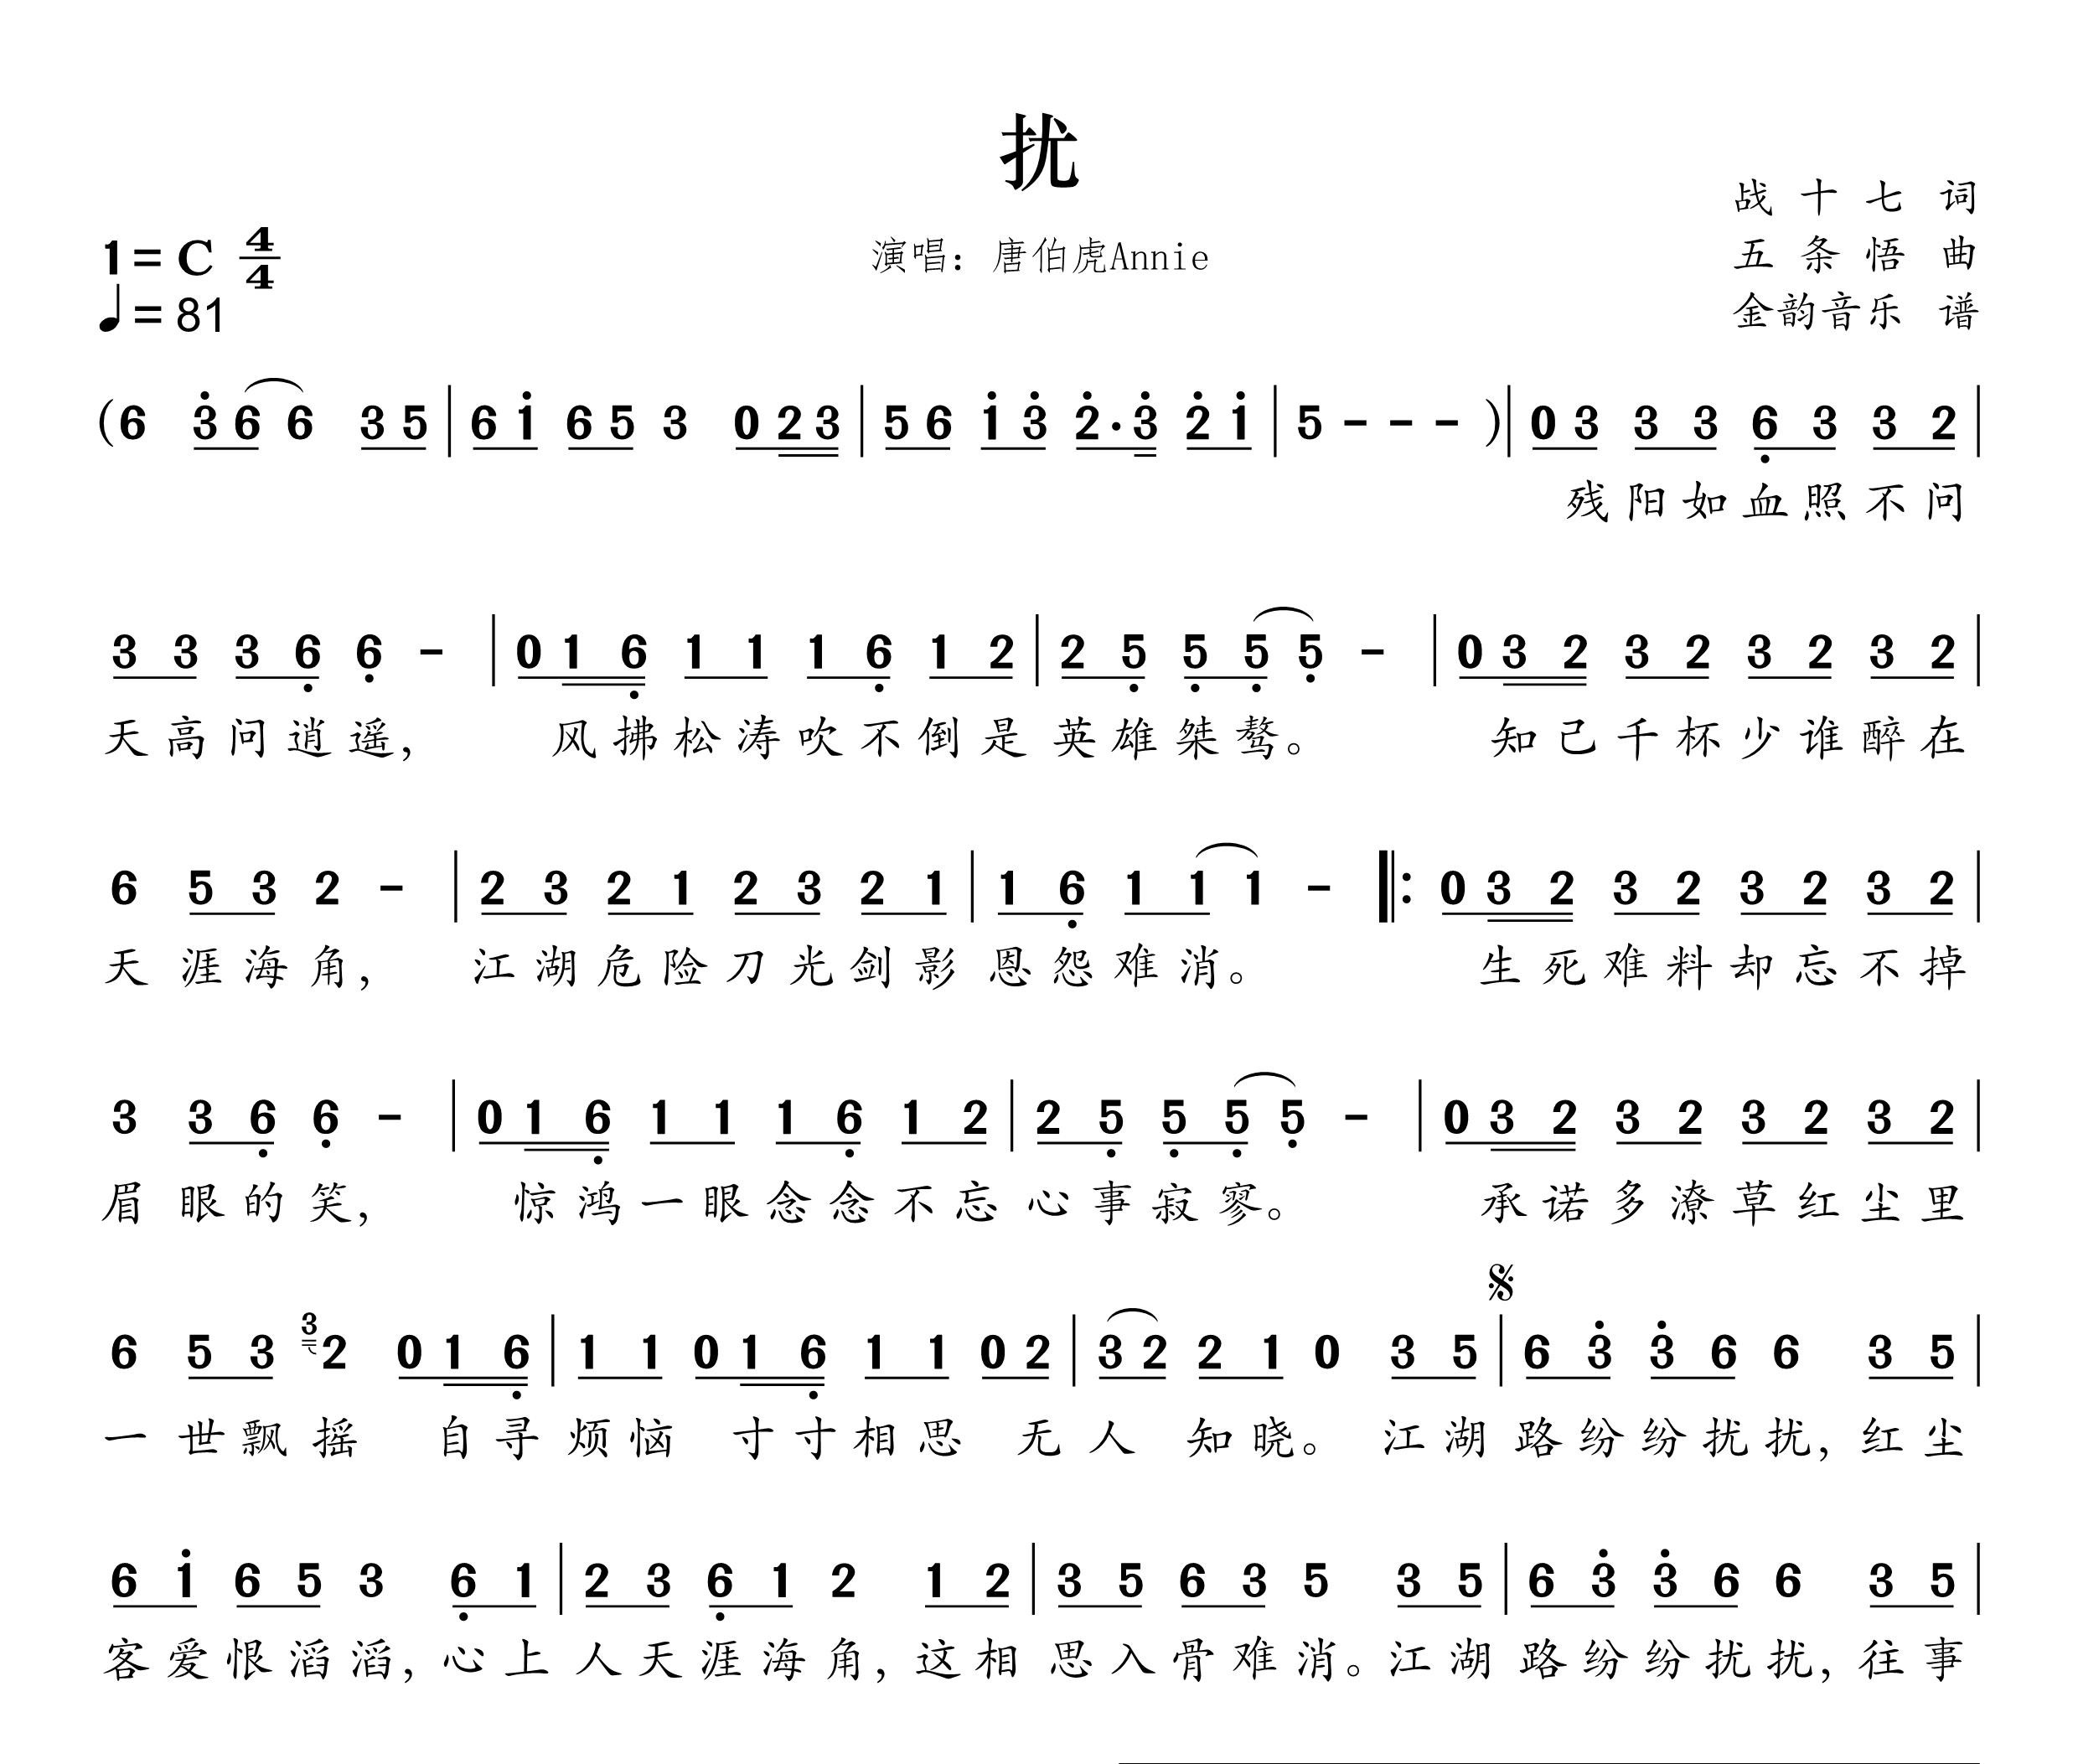 扰
战十七 词
1=C 4/4
演唱：唐伯虎Annie
五条悟 曲
♩=81
金韵音乐 谱
(6 3̇6 6 35 | 61̇ 65 3 023 | 56 1̇3̇ 2̇·3̇ 2̇1̇ | 5 - - - )| 03 33 6̣3 32 |
残阳如血照不问
33 36̣ 6̣ - | 016̣ 11 16̣ 12 | 25̣ 5̣5̣ 5̣ - | 032 32 32 32 |
天高问逍遥， 风拂松涛吹不倒是英雄桀骜。 知己千杯少谁醉在
6 53 2 - | 23 21 23 21 | 16̣ 11 1 - |: 032 32 32 32 |
天涯海角， 江湖危险刀光剑影恩怨难消。 生死难料却忘不掉
3 36̣ 6̣ - | 016̣ 11 16̣ 12 | 25̣ 5̣5̣ 5̣ - | 032 32 32 32 |
眉眼的笑， 惊鸿一眼念念不忘心事寂寥。 承诺多潦草红尘里
𝄋
6 53 3 2 016̣ | 11 016̣ 11 02 | 32 21 0 35 | 63̇ 3̇6 6 35 |
一世飘摇 自寻烦恼 寸寸相思 无人 知晓。 江湖路纷纷扰扰，红尘
61̇ 65 3 6̣1 | 23 6̣1 2 12 | 35 63 5 35 | 63̇ 3̇6 6 35 |
客爱恨滔滔，心上人天涯海角，这相思入骨难消。江湖路纷纷扰扰，往事